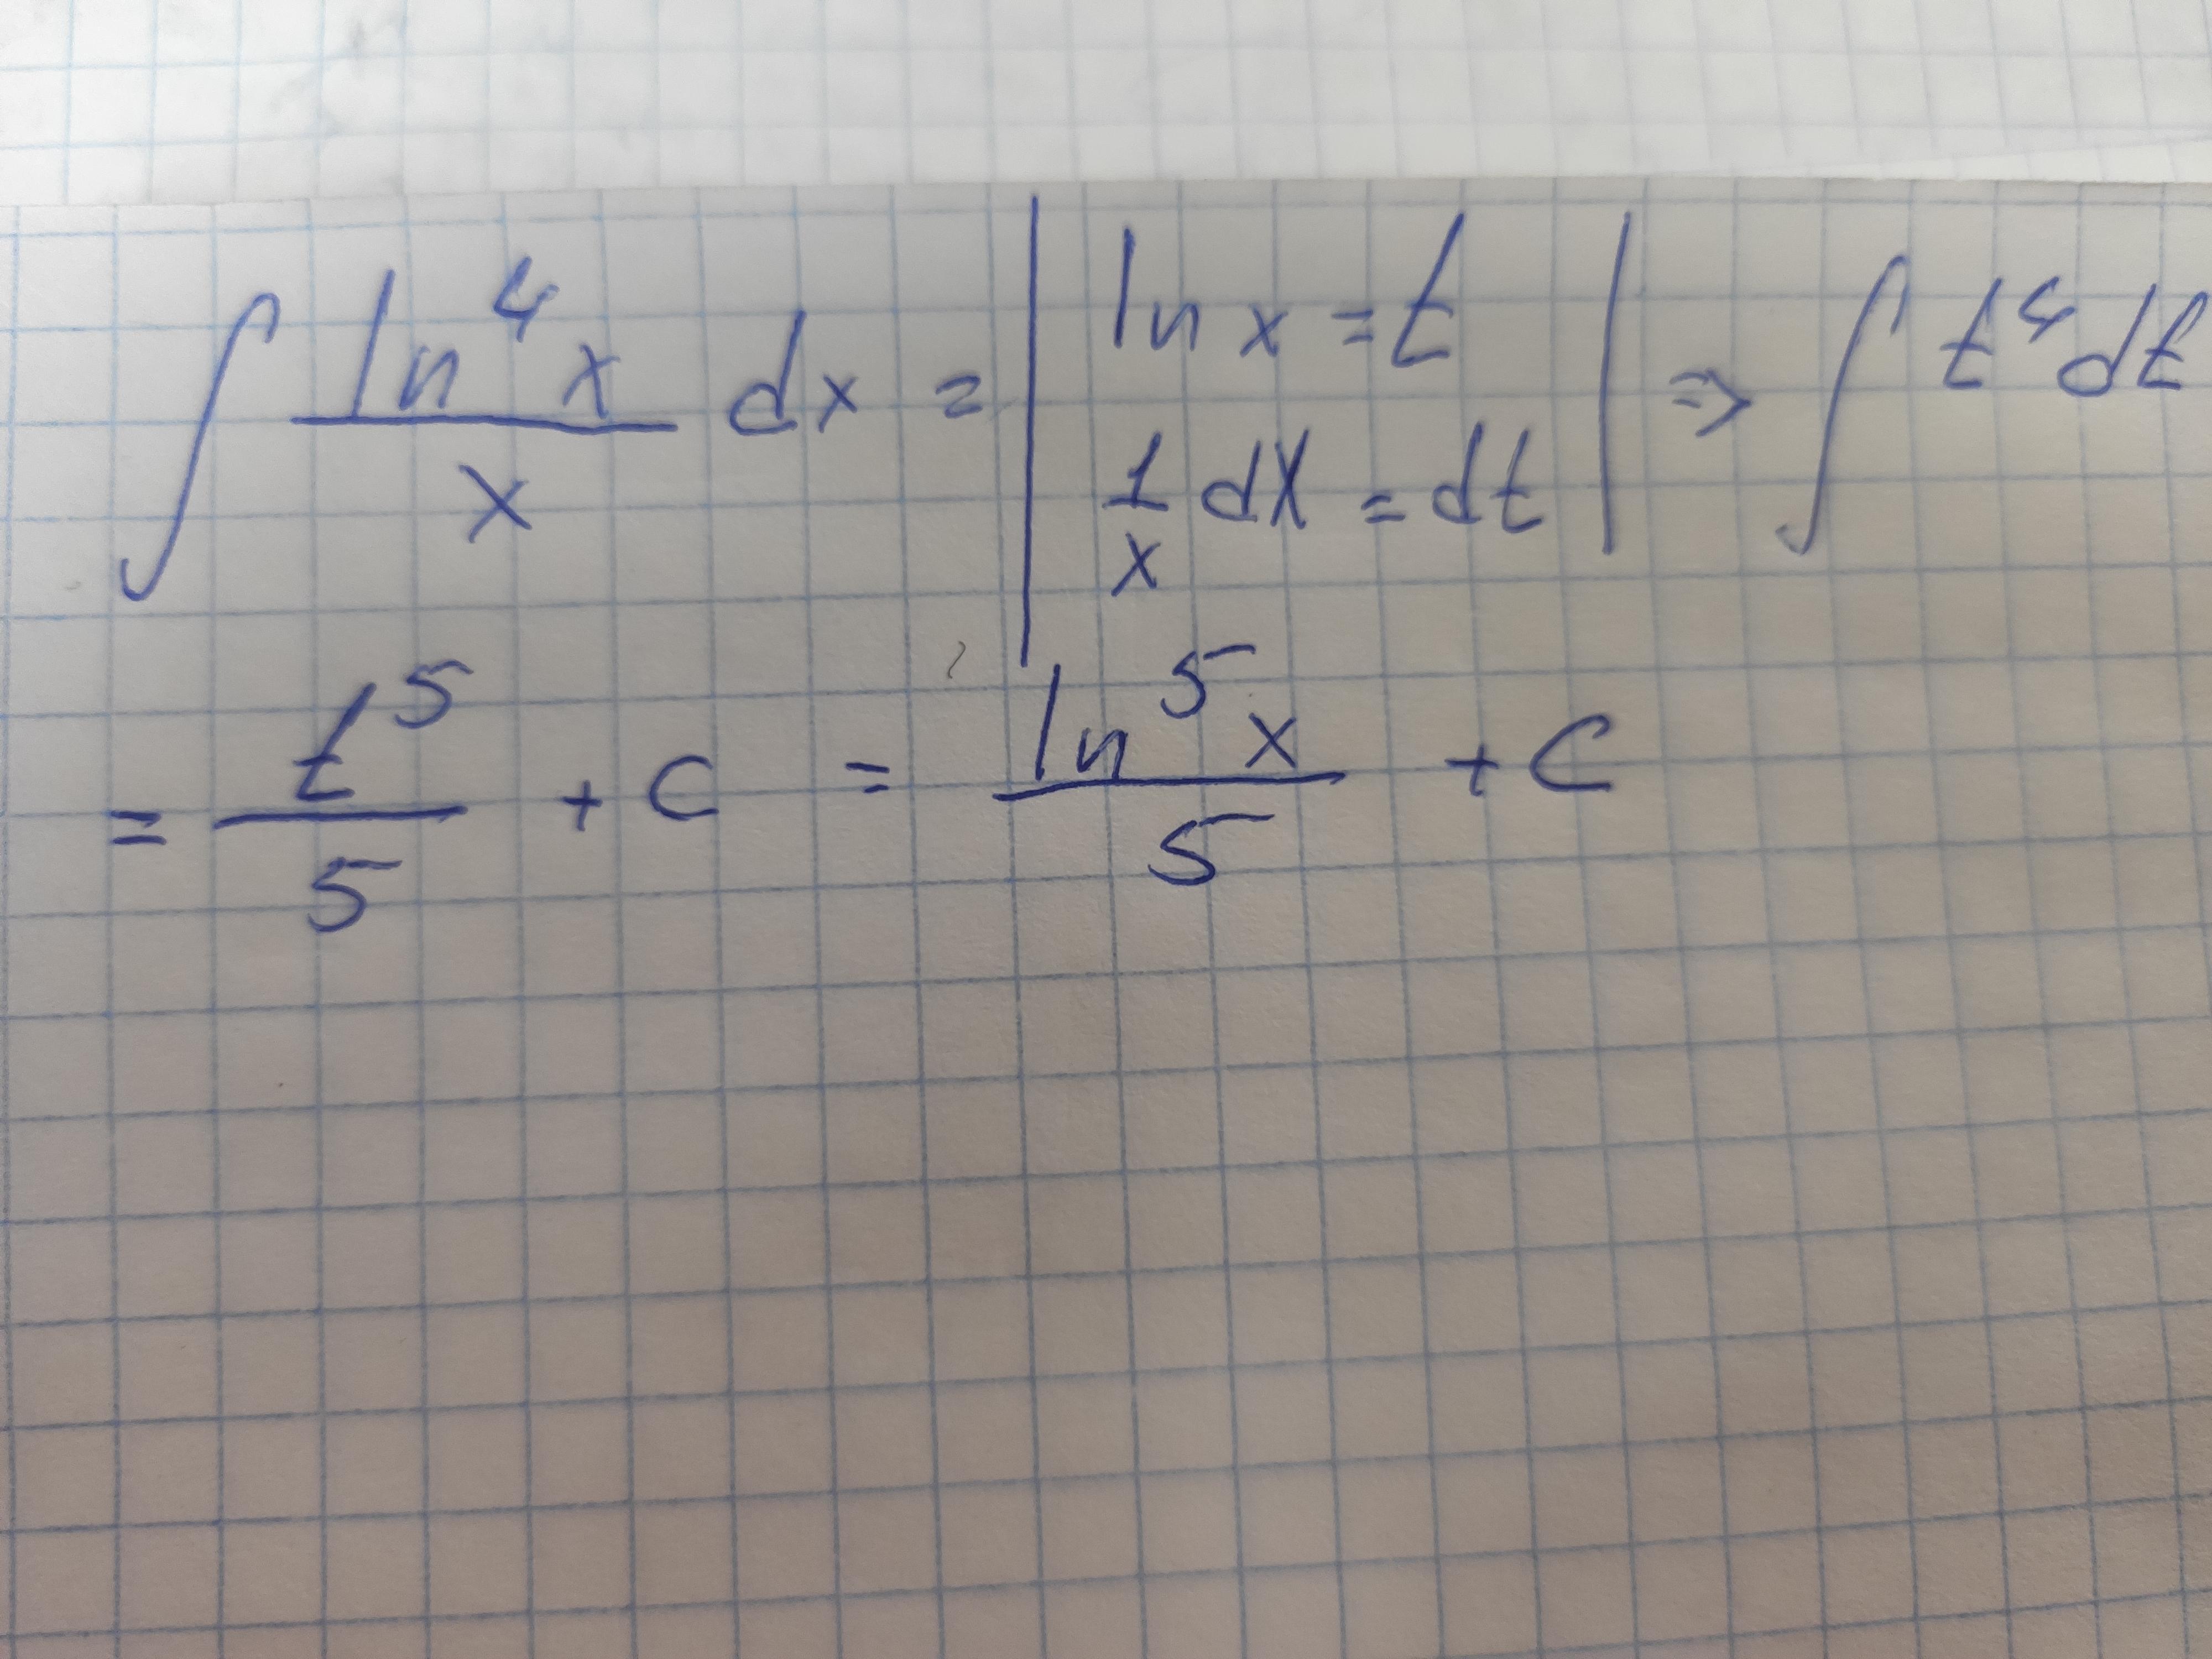 ∫ ln⁴x/x dx = | ln x = t, 1/x dx = dt | ⇒ ∫ t⁴ dt
= t⁵/5 + C = ln⁵x/5 + C